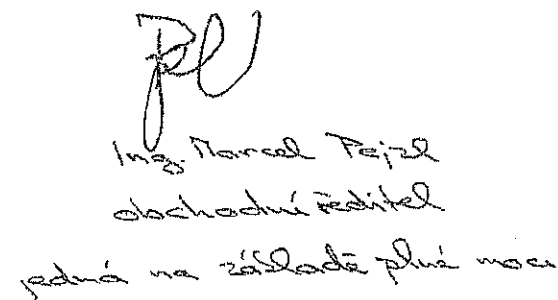 Ing. Marcel Pejzl
obchodní ředitel
jedná na základě plné moci